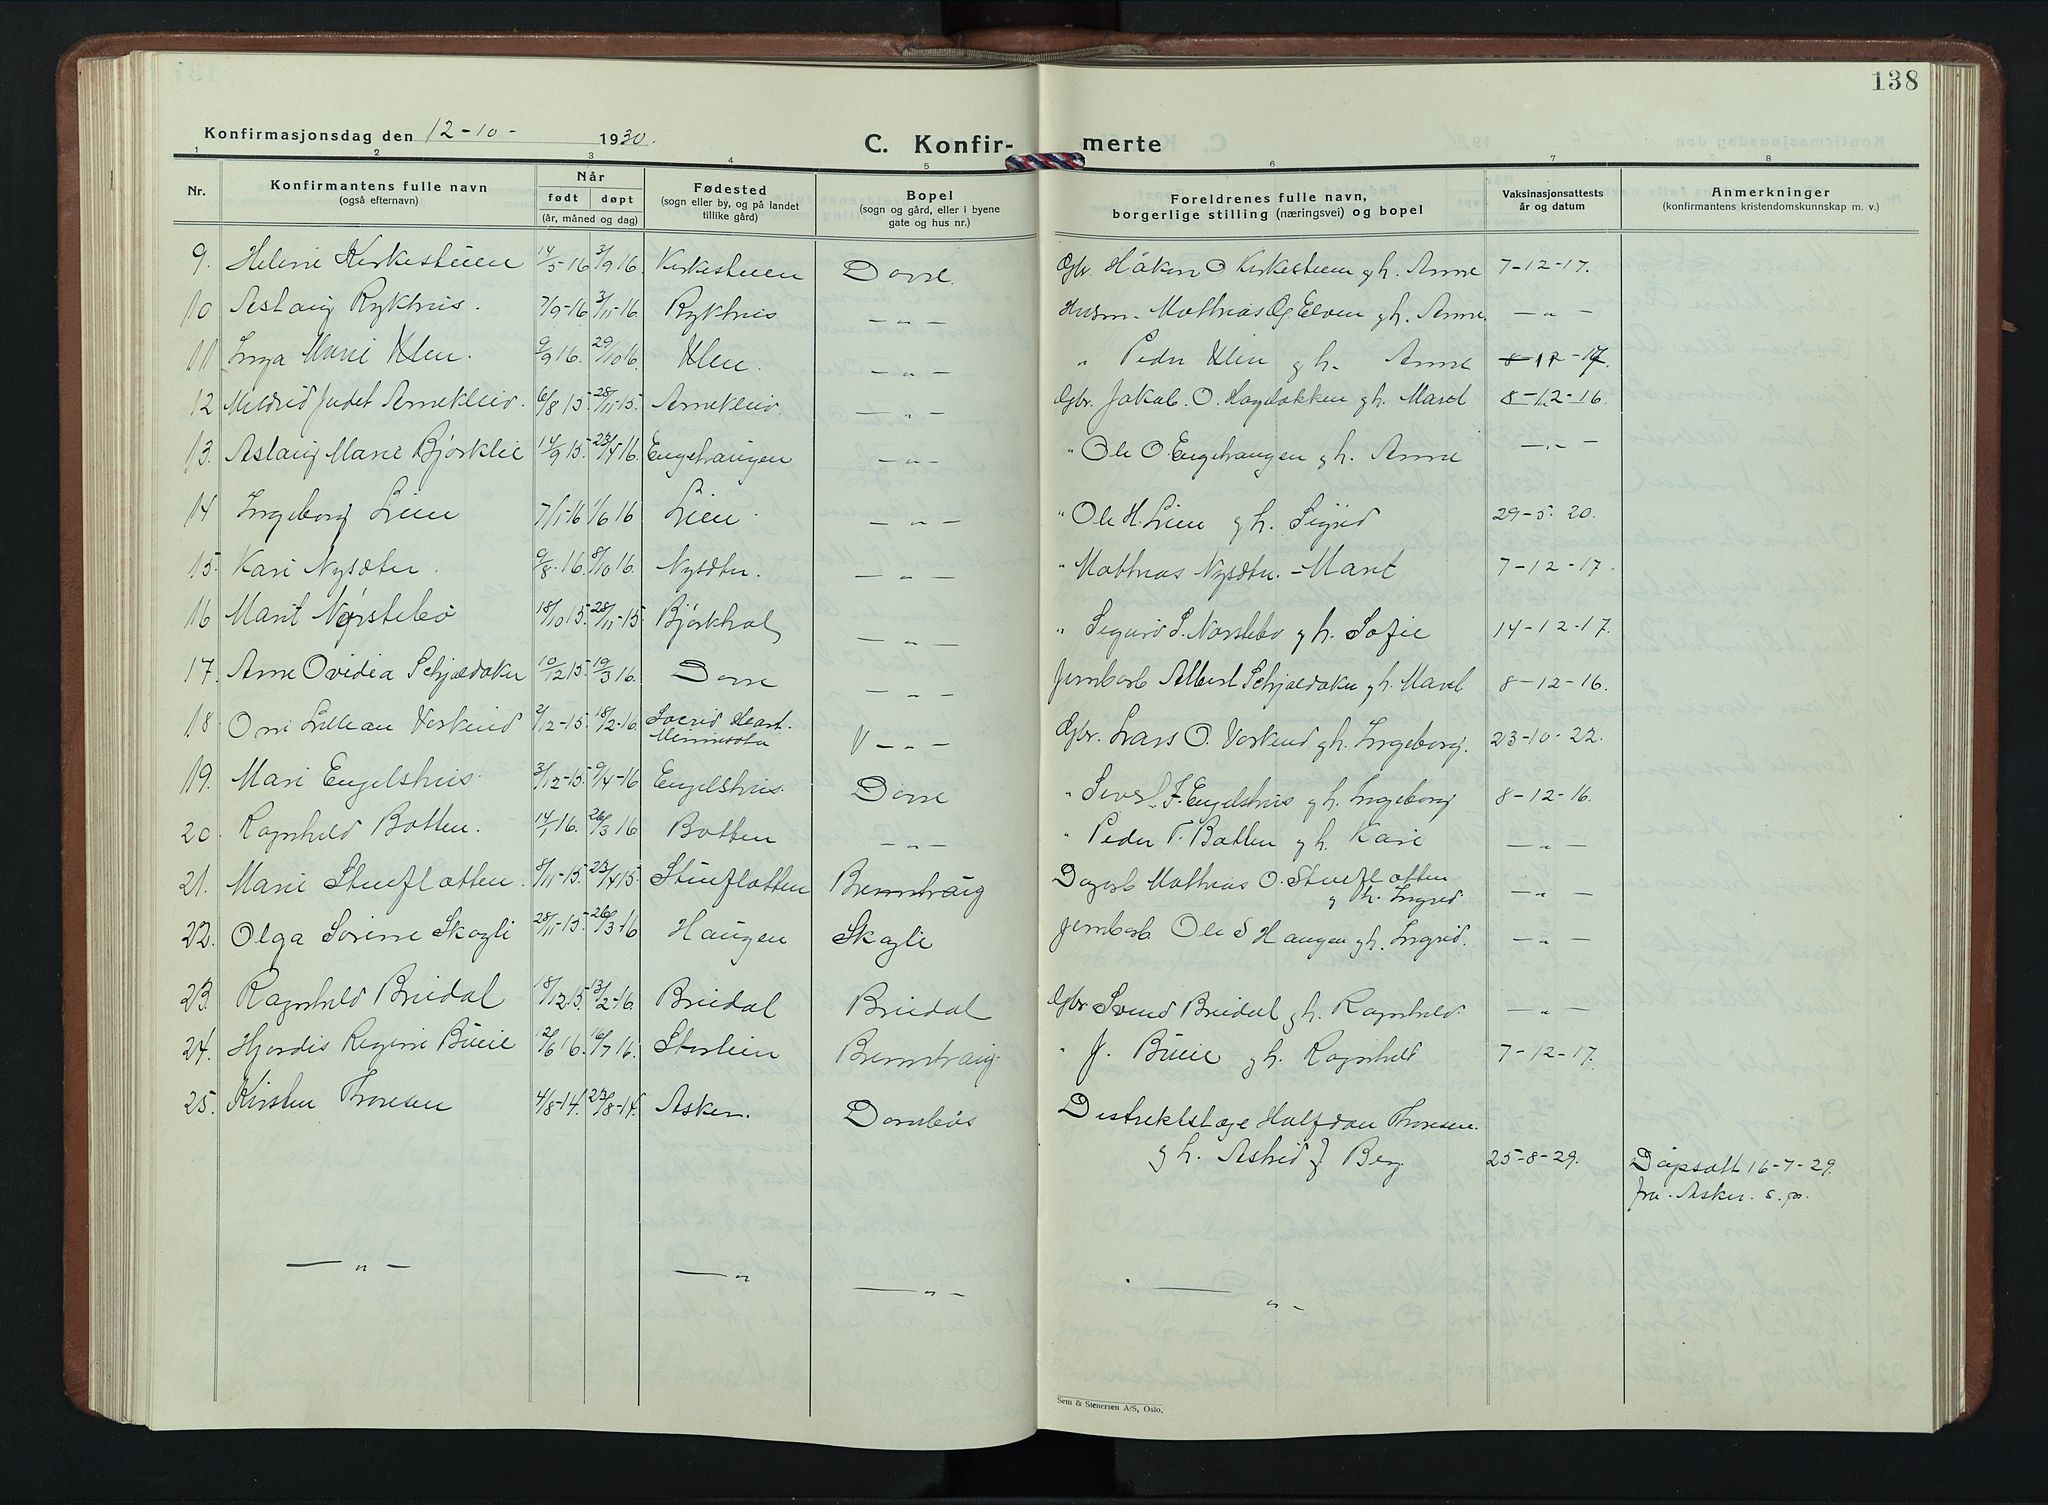 138
Konfirmasjonsdag den 12-10- 1930.
C. Konfir- merte
1 2 3 4 5 6 7 8
Nr. Konfirmantens fulle navn (også efternavn) Når født døpt (år, måned og dag) Fødested (sogn eller by, og på landet tillike gård) Bopel (sogn og gård, eller i byene gate og hus nr.) Foreldrenes fulle navn, borgerlige stilling (næringsvei) og bopel Vaksinasjonsattests år og datum Anmerkninger (konfirmantens kristendomskunnskap m. v.)
9. Helene Kirkestuen 14/5-16 3/9 16 Kirkestuen Dovre. Gbr. Håkon O Kirkestuen gh. Anne 7-12-17.
10 Aslaug Rykhus. 7/9-16 3/11-16 Rykhus —"— Husm. Mathias Elven gh. Anne. —"—
11 Inga Marie Klen. 9/9 16. 29/10 16. Klen. —"— " Peder Klen gh. Anne 12-17.
12 Mildrid Judet Arnekleiv. 6/8 15 28/11-15. Arnekleiv. —"— Gbr. Jakob. O. Hagelökken gh. Marit 8-12-16.
13. Aslaug Marie Bjørklie 14/9 15- 23/4 16. Engehaugen —"— " Ole O. Engehaugen gh. Anne —"—
14 Ingeborg Lien 7/1-16 1/6 16 Lien. —"— " Ole H. Lien gh. Sigrid 29-5-20.
15. Kari Nysæter. 9/8-16. 8/10 16. Nysæter. —"— " Mathias Nysæter. - Marit 7-12-17.
16 Marit Nørstebö 18/10 15. 28/11-15 Bjørkhol —"— " Sigurd S. Nørstebö gh. Sofie 14-12-17.
17. Anne Ovidia Schjeldaker 10/12 15. 19/3 16. Dovre —"— Jernbarb Albert Schjeldaker gh. Marit 8-12-16.
18. Orri Lillean Verkend 2/12-15. 18/2-16 Minnesota —"— Gbr. Lars O. Verkend gh. Ingeborg. 23-10-22.
19. Mari Engelshus. 3/12-15. 9/4-16 Engelshus. Dovre " Siver J. Engelshus gh. Ingeborg 8-12-16.
20. Ragnhild Botten. 14/1 16. 26/3 16 Botten —"— " Peder T. Botten gh. Kari —"—
21. Marie Stueflotten. 8/11-15. 23/4 15. Stueflotten Brennhaug Dagarb Mathias O. Stueflotten gh. Ingrid —"—
22. Olga Sorine Skogli 28/11-15. 26/3-16 Haugen Skogli Jernbarb. Ole S Haugen gh. Ingrid. —"—
23. Ragnhild Bredal 18/12 15 13/2-16. Bredal Bredal Gbr Svend Bredal gh. Ragnhild —"—
24. Hjørdis Regine Bueie 12/6 16. 16/7 16. Storlien Brennhaug " J. Bueie gh. Ragnhild 7-12-17.
25. Kirsten Thoresen 4/8-14. 23/8-14. Asker. Dombås Distriktslæge Halfdan Thoresen.
gh. Astrid f Berg. 25-8-29. Dåpsatt 16-7-29.
fra. Asker. s. p.
—"— —"— —"— —"—
Sem & Stenersen A/S, Oslo.